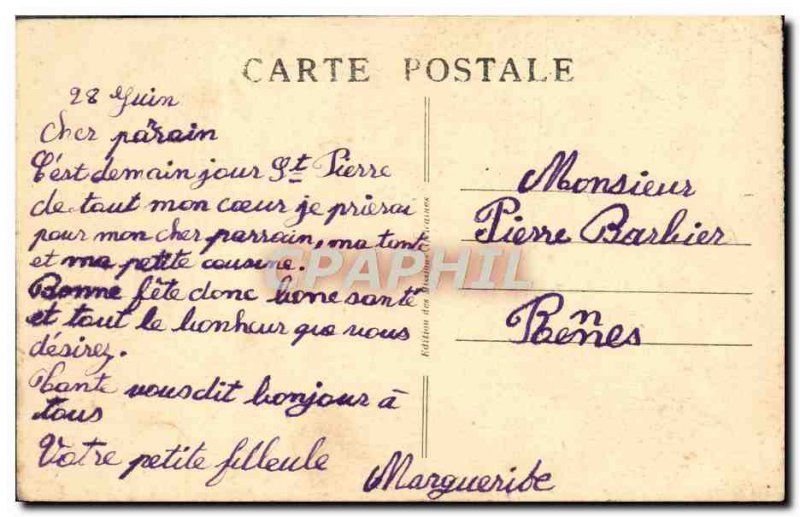 CARTE POSTALE
28 Juin
Cher parrain
C'est demain jour St Pierre
de tout mon cœur je prierai
pour mon cher parrain, ma tant
et ma petite cousine.
Bonne fête donc bone santé
et tout le bonheur que vous
désirez.
vous dit bonjour à
tous
Votre petite filleule
Marguerite
Monsieur
Pierre Barbier
Rennes
Edition des Missions Africaines
CPARPHIL